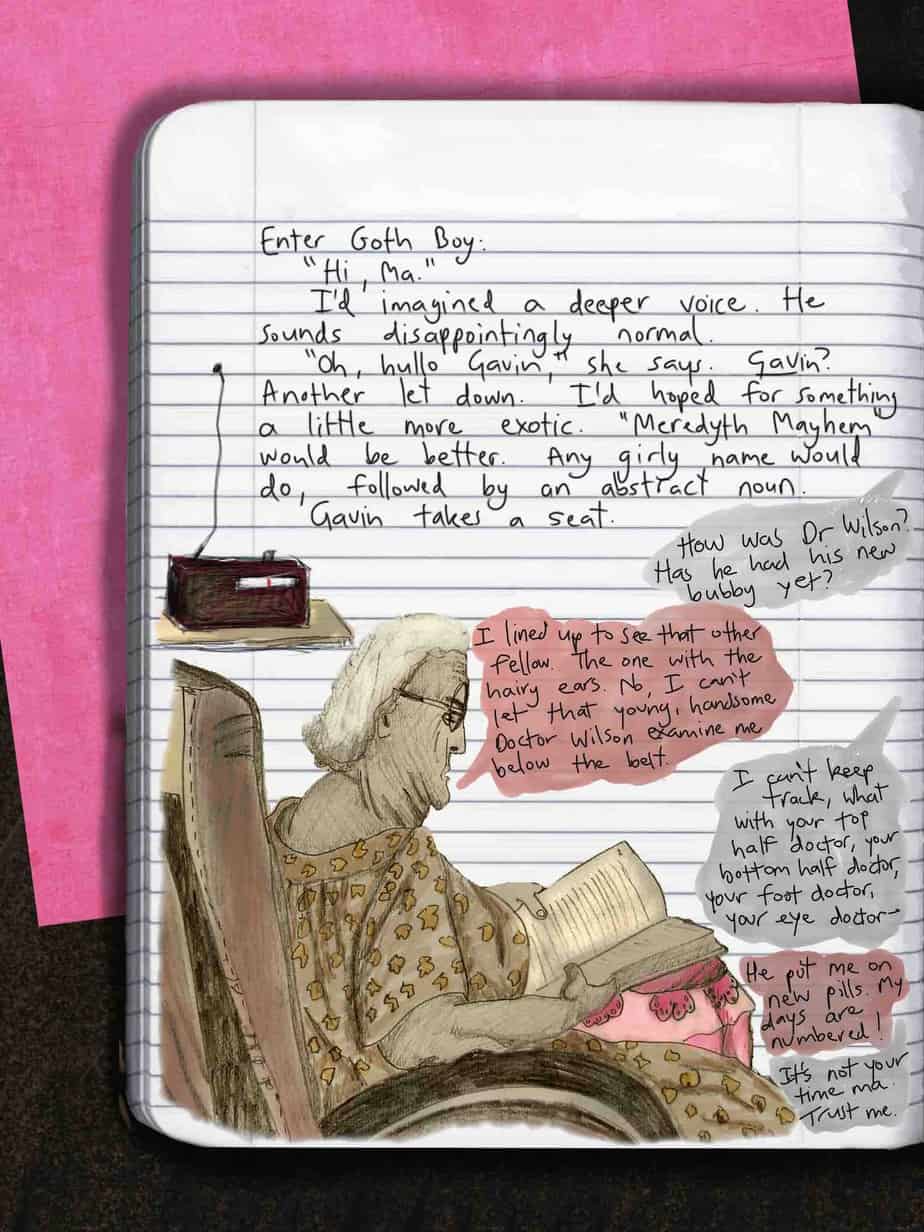 Enter Goth Boy:
"Hi, Ma."
I'd imagined a deeper voice. He
sounds disappointingly normal.
"Oh, hullo Gavin," she says. Gavin?
Another let down. I'd hoped for something
a little more exotic. "Meredyth Mayhem"
would be better. Any girly name would
do, followed by an abstract noun.
Gavin takes a seat.
How was Dr Wilson?
Has he had his new
bubby yet?
I lined up to see that other
fellow. The one with the
hairy ears. No, I can't
let that young, handsome
Doctor Wilson examine me
below the belt.
I can't keep
track, what
with your top
half doctor, your
bottom half doctor,
your foot doctor,
your eye doctor-
He put me on
new pills. My
days are
numbered!
It's not your
time ma.
Trust me.